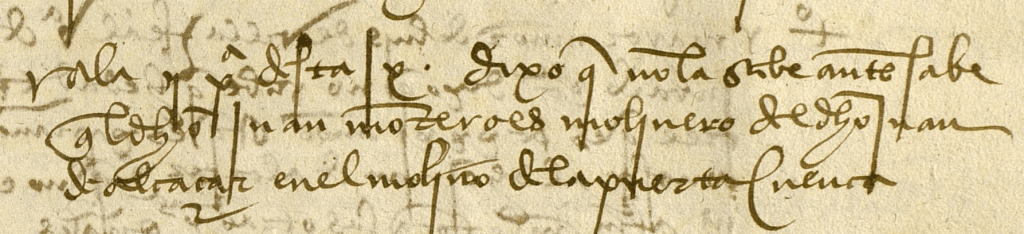 r a la ij pª desta px. dixo q̃ no la sabe antes sabe
q̃l dho Juan montero es molinero del dho Juan
de alcaçar en el molino de la puerta cuenca